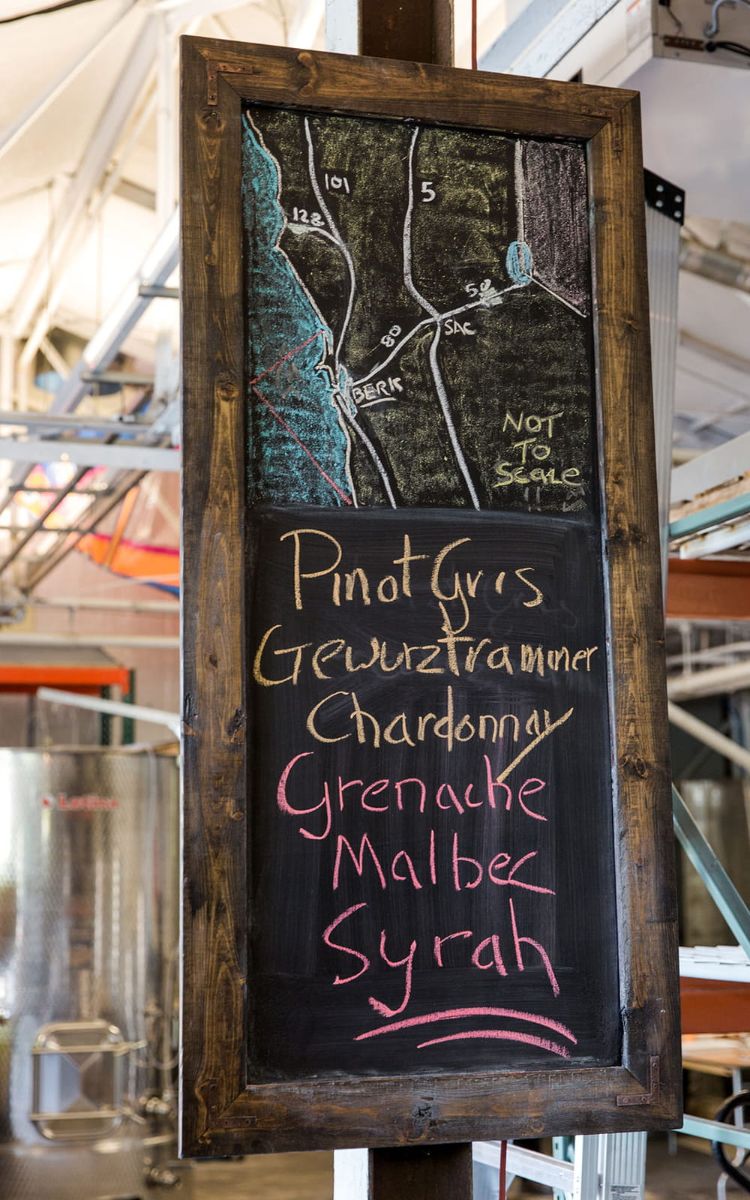 101
5
128
50
80
SAC
BERK
NOT
TO
Scale
Pinot Gris
Gewurztraminer
Chardonnay
Grenache
Malbec
Syrah